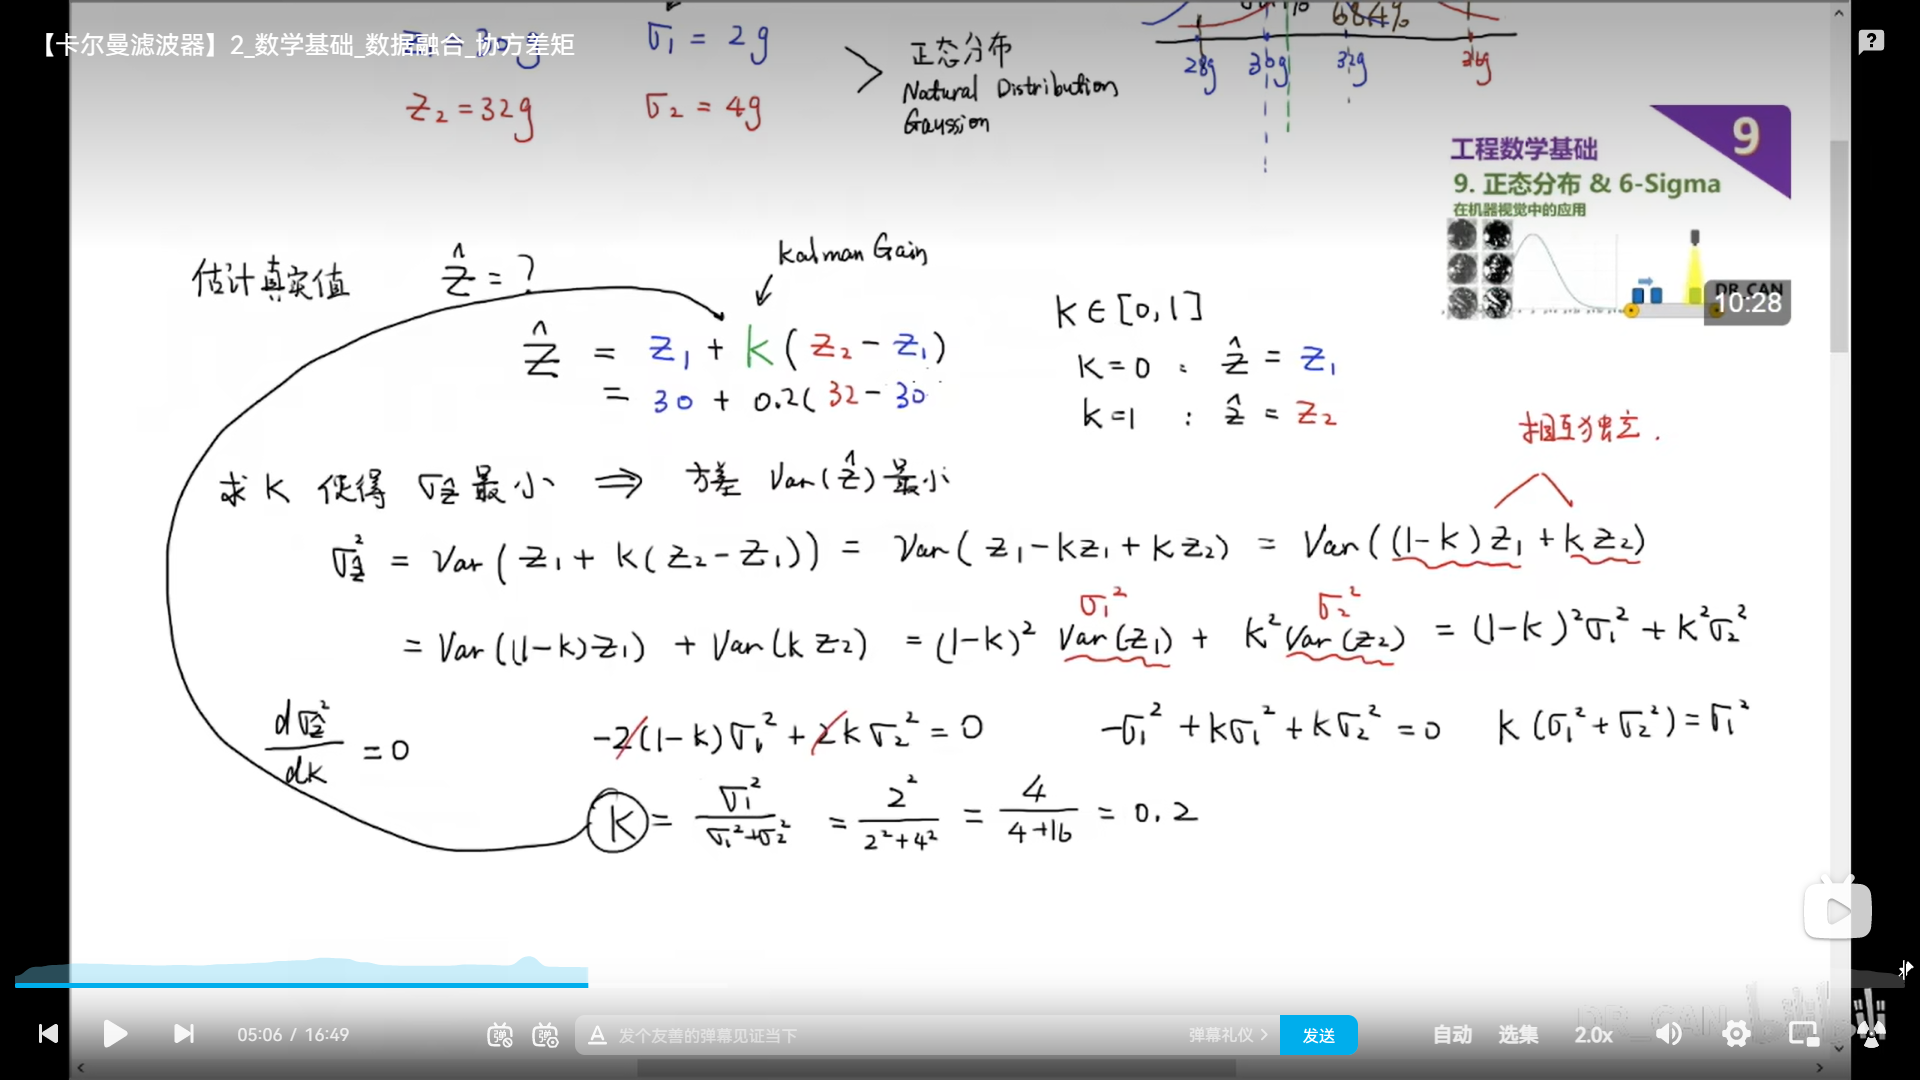 【卡尔曼滤波器】2_数学基础_数据融合_协方差矩
z₁ = 30g σ₁ = 2g
z₂ = 32g σ₂ = 4g
正态分布
Natural Distribution
Gaussion
68.4%
28g 30g 32g 36g
9
工程数学基础
9. 正态分布 & 6-Sigma
在机器视觉中的应用
DR_CAN
10:28
估计真实值 ẑ = ?
Kalman Gain
ẑ = z₁ + k(z₂ - z₁)
= 30 + 0.2(32 - 30
k ∈ [0,1]
k = 0 : ẑ = z₁
k = 1 : ẑ = z₂
相互独立.
求 k 使得 σẑ 最小 ⇒ 方差 Var(ẑ) 最小
σẑ² = Var(z₁ + k(z₂ - z₁)) = Var(z₁ - kz₁ + kz₂) = Var((1-k)z₁ + kz₂)
σ₁² σ₂²
= Var((1-k)z₁) + Var(kz₂) = (1-k)² Var(z₁) + k² Var(z₂) = (1-k)²σ₁² + k²σ₂²
dσẑ²/dk = 0 -2(1-k)σ₁² + 2kσ₂² = 0 -σ₁² + kσ₁² + kσ₂² = 0 k(σ₁² + σ₂²) = σ₁²
k = σ₁²/(σ₁²+σ₂²) = 2²/(2²+4²) = 4/(4+16) = 0.2
DR_CAN
05:06 / 16:49
弹 弹
A 发个友善的弹幕见证当下 弹幕礼仪 > 发送
自动 选集 2.0x